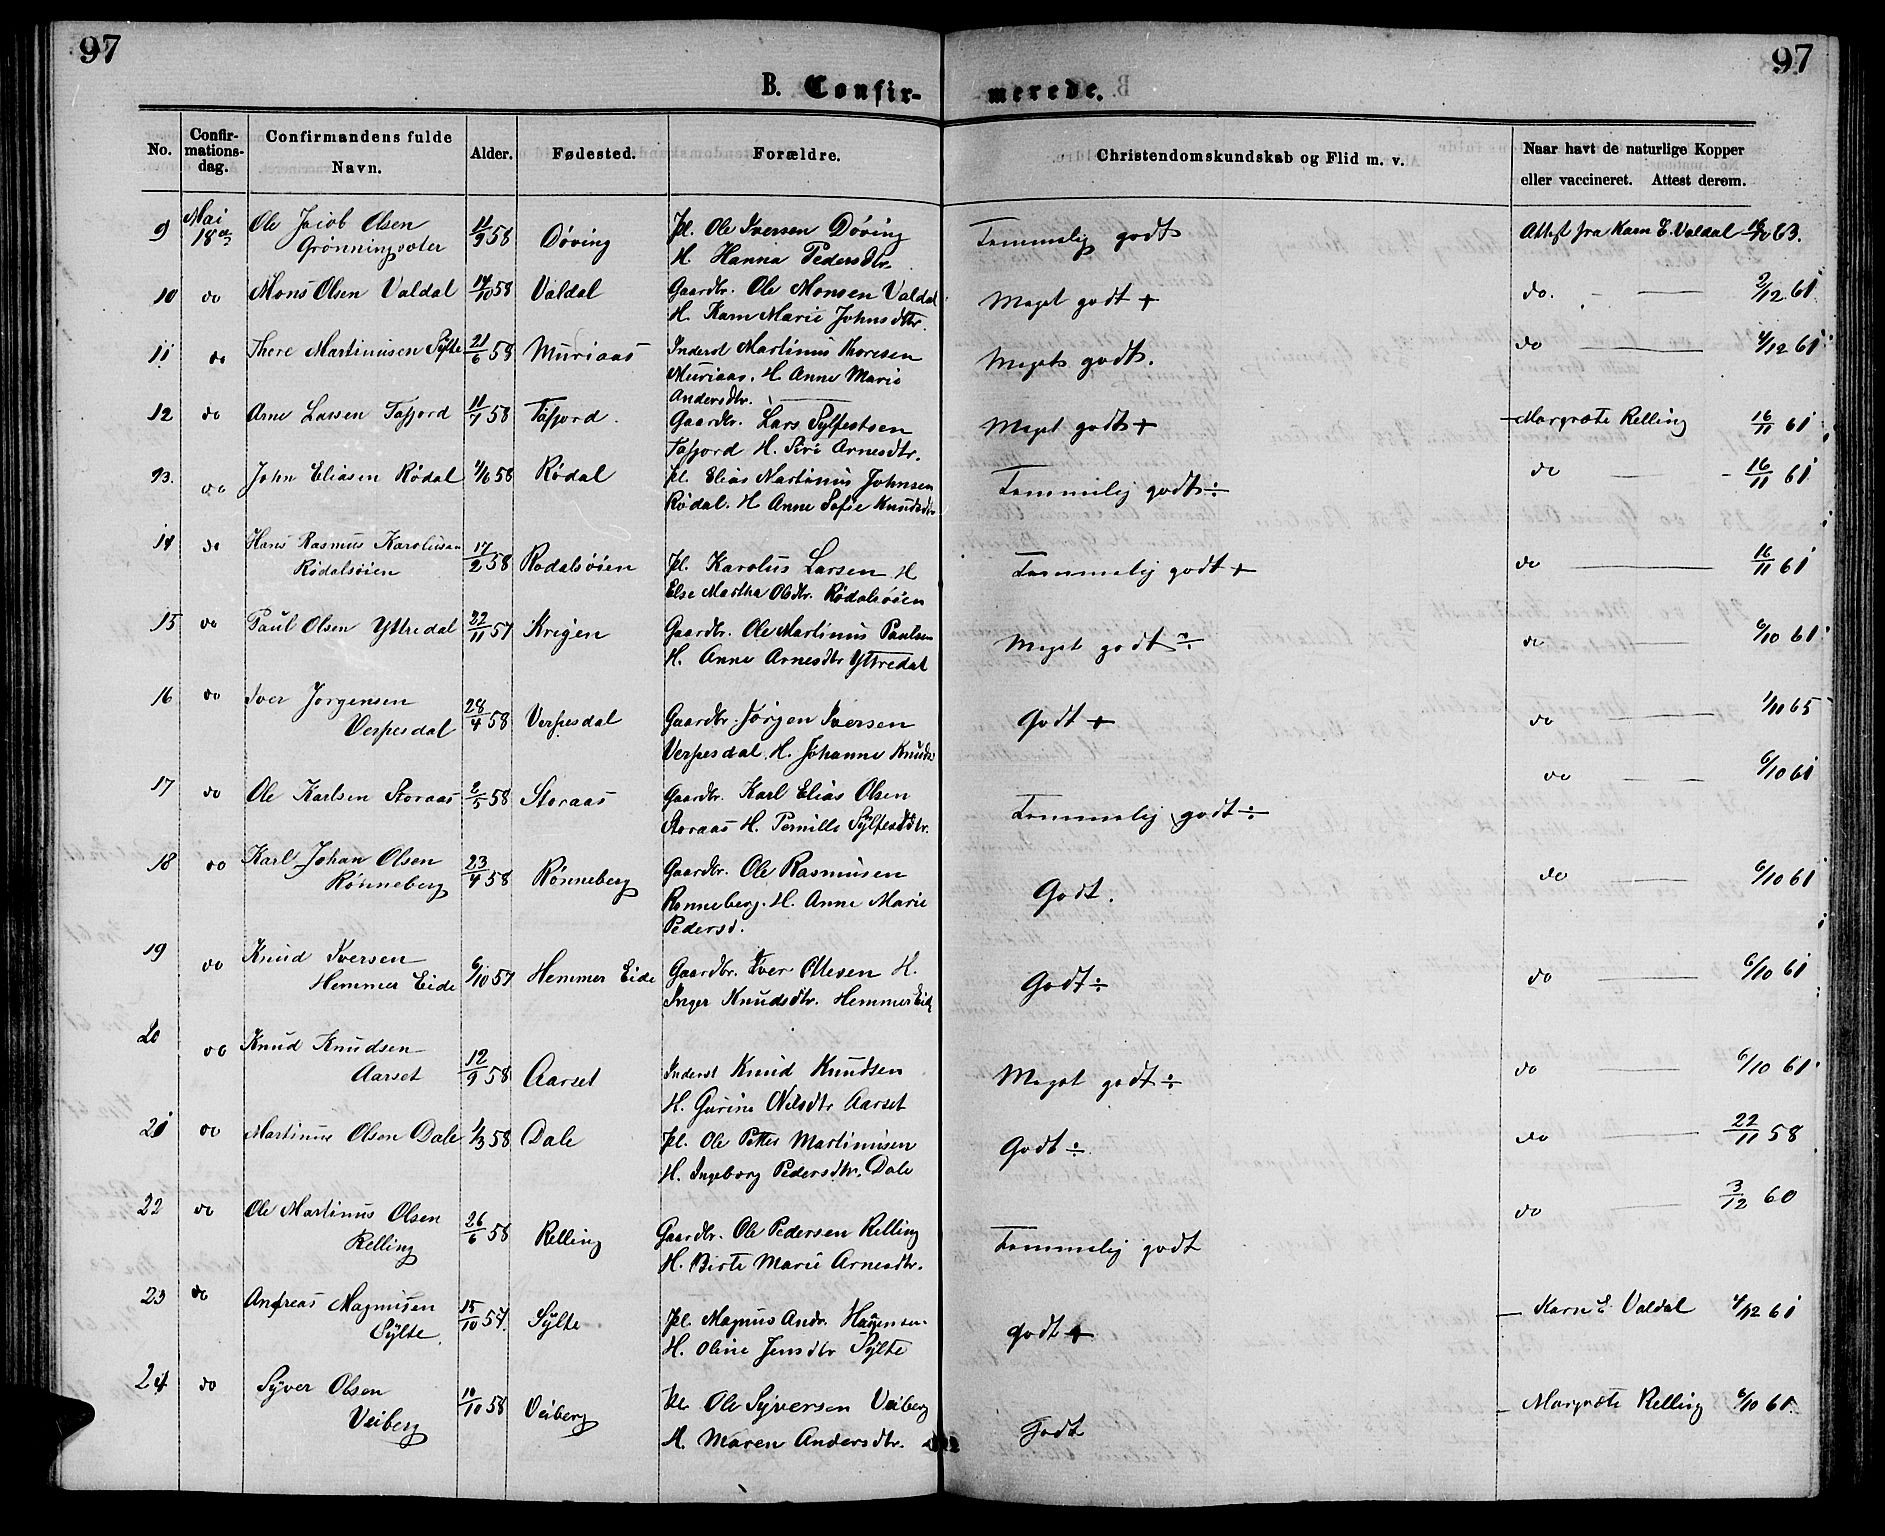 97
97
B. Confir- merede.
No.
Confir-
mations-
dag.
Confirmandens fulde
Navn.
Alder.
Fødested.
Forældre.
Christendomskundskab og Flid m. v.
Naar havt de naturlige Kopper
eller vaccineret. Attest derom.
9 Mai 18 Ole Jacob Olsen 11/9 58 Døving Pl. Ole Iversen Døving Temmelig godt Attest fra Karn E. Valdal 63.
H. Hanna Pedersdtr.
10 do Mons Olsen Valdal 14/10 58 Valdal Gaardbr. Ole Monsen Valdal Meget godt + do. — 2/12 61
H. Karn Marie Johnsdtr.
11 do Thore Martinusen Sylte 21/6 58 Muriaas Inderst Martinus Thoresen Meget godt. do — 4/12 61
Muriaas. H. Anne Marie
Andersdtr.
12 do Arne Larsen Tafjord 11/7 58 Tafjord. Gaardbr. Lars Sylfestsen Meget godt + Margrete Relling 16/11 61
Tafjord H. Siri Arnesdtr.
13. do John Eliasen Rødal 58 Rødal Pl. Elias Martinus Johnsen Temmelig godt ÷ do — 16/11 61
Rødal. H. Anne Sofie Knudsdtr
14 do Hans Rasmus Karolusen 17/2 58 Rødalsøien Pl. Karolus Larsen H. Temmelig godt + do — 16/11 61
Rødalsøien
Else Martha Olsdtr. Rødalsøien
15 do Paul Olsen Yttredal 22/11 57 Krigen Gaardbr. Ole Martinus Paulsen Meget godt ÷ do — 6/10 61
H. Anne Arnesdtr Yttredal
16 do Iver Jørgensen 28/4 58 Verpesdal Gaardbr. Jørgen Iversen Godt + do — 1/11 65
Verpesdal
Verpesdal. H. Johanne Knuds
17 do Ole Karlsen Storaas 2/5 58 Storaas Gaardbr. Karl Elias Olsen Temmelig godt ÷ do — 6/10 61
Storaas H. Pernille Sylfestdtr.
18 do Karl Johan Olsen 23/4 58 Rønneberg Gaardbr. Ole Rasmusen Godt. do — 6/10 61
Rønneberg
Rønneberg. H. Anne Marie
Pedersd.
19 do Knud Iversen 6/10 57 Hemmer Eide Gaardbr. Iver Ottesen H. Godt ÷ do — 6/10 61
Hemmer Eide
Inger Knudsdtr. Hemmer Eide
20 do Knud Knudsen 12/9 58 Aarset Inderst Knud Knudsen Meget godt ÷ do — 6/10 61
Aarset
H. Gurine Nilsdtr Aarset
21 do Martinus Olsen Dale 1/3 58 Dale Pl. Ole Petter Martinusen Godt ÷ do — 22/11 58
H. Ingeborg Pedersdtr. Dale
22 do Ole Martinus Olsen 26/6 58 Relling Gaardbr. Ole Pedersen Relling Temmelig godt do — 3/12 60
Relling
H. Birte Marie Arnesdtr.
23 do Andreas Magnusen 15/10 57. Sylte Pl. Magnus Andr. Hagensen godt + Karn E. Valdal 4/12 61
Sylte
H. Oline Jensdtr Sylte
24 do Syver Olsen 10/10 58 Veiberg Pl. Ole Syversen Veiberg Godt Margrete Relling 6/10 61.
Veiberg
H. Maren Andersdtr.